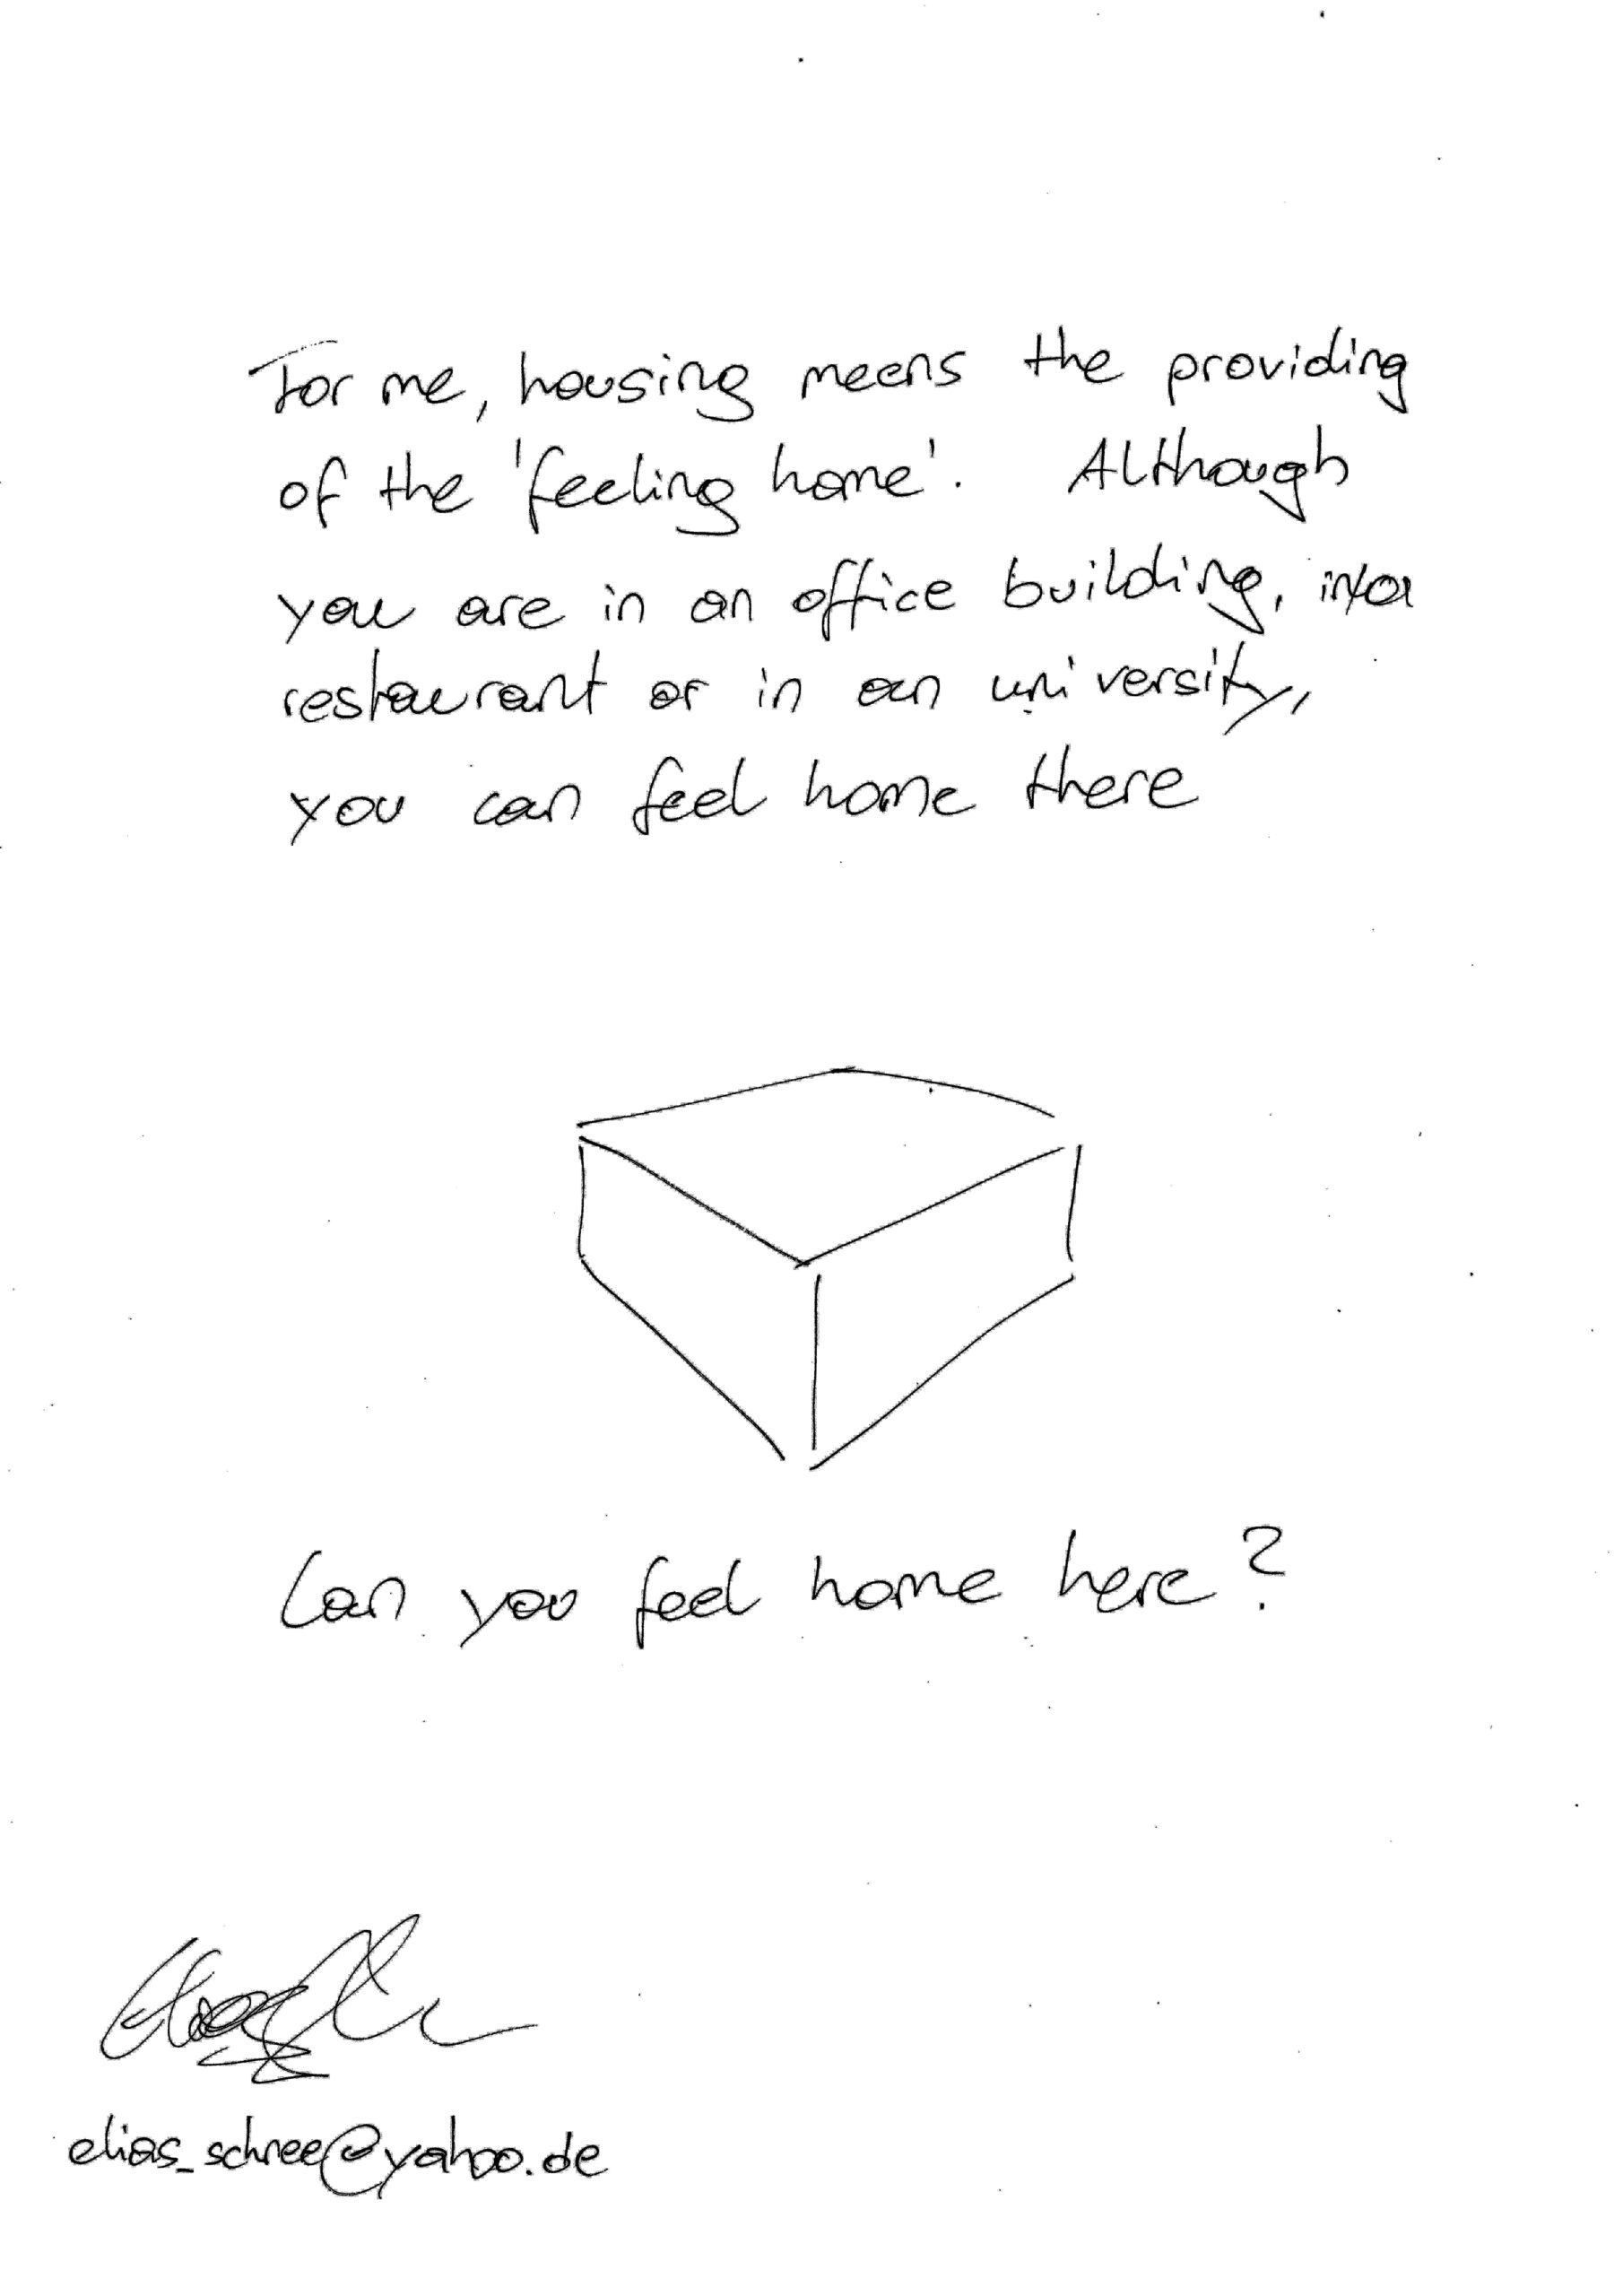 For me, housing meens the providing
of the 'feeling home'. Although
you are in an office building, in a
restaurant or in an university,
you can feel home there
Can you feel home here?
elias_schree@yahoo.de